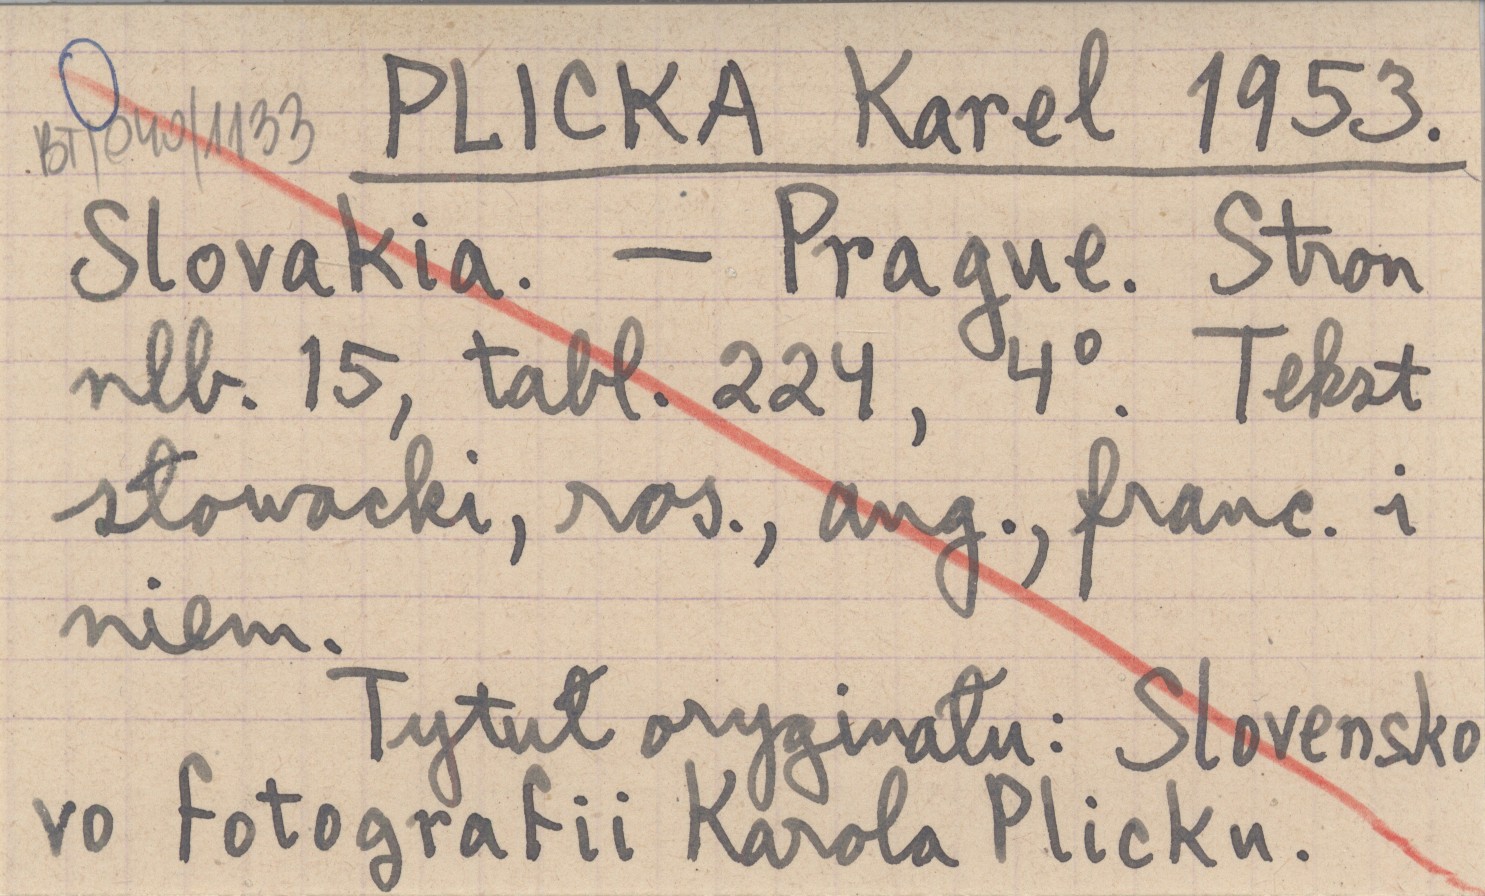 PLICKA Karel 1953.
BT/040/1133
Slovakia. — Prague. Stron
nlb. 15, tabl. 224, 4°. Tekst
słowacki, ros., ang., franc. i
niem.
Tytuł oryginału: Slovensko
vo fotografii Karola Plicku.